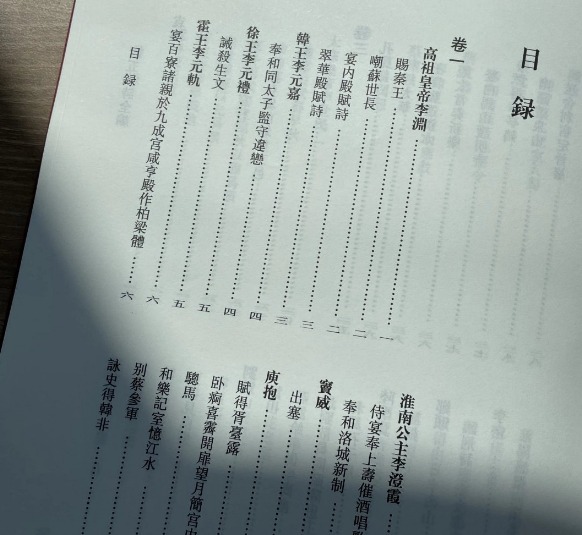 目録
卷一
高祖皇帝李淵……一
賜秦王……二
嘲蘇世長……二
宴内殿賦詩……三
翠華殿賦詩……三
韓王李元嘉……四
奉和同太子監守違戀……四
徐王李元禮……五
誡殺生文……五
霍王李元軌……六
宴百寮諸親於九成宫咸亨殿作柏梁體……六
目録
淮南公主李澄霞……
侍宴奉上壽催酒唱
奉和洛城新制……
竇威……
出塞……
庾抱……
賦得胥臺露……
卧痾喜霽開扉望月簡宫
驄馬……
和樂記室憶江水……
别蔡參軍……
詠史得韓非……